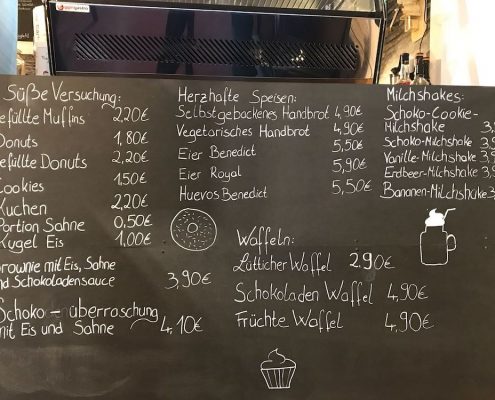 gamgastro
Süße Versuchung:
efüllte Muffins 2,20€
Donuts 1,80€
efüllte Donuts 2,20€
Cookies 1,50€
Kuchen 2,20€
Portion Sahne 0,50€
Kugel Eis 1,00€
rownie mit Eis, Sahne
nd Schokoladensauce 3,90€
Schoko-überraschung
mit Eis und Sahne 4,10€
Herzhafte Speisen:
Selbstgebackenes Handbrot 4,90€
Vegetarisches Handbrot 4,90€
Eier Benedict 5,50€
Eier Royal 5,90€
Huevos Benedict 5,50€
Waffeln:
Lütticher Waffel 2.90€
Schokoladen Waffel 4,90€
Früchte Waffel 4,90€
Milchshakes:
Schoko-Cookie-
Milchshake 3,
Schoko-Milchshake 3,
Vanille-Milchshake 3,9
Erdbeer-Milchshake 3,9
Bananen-Milchshake 3,